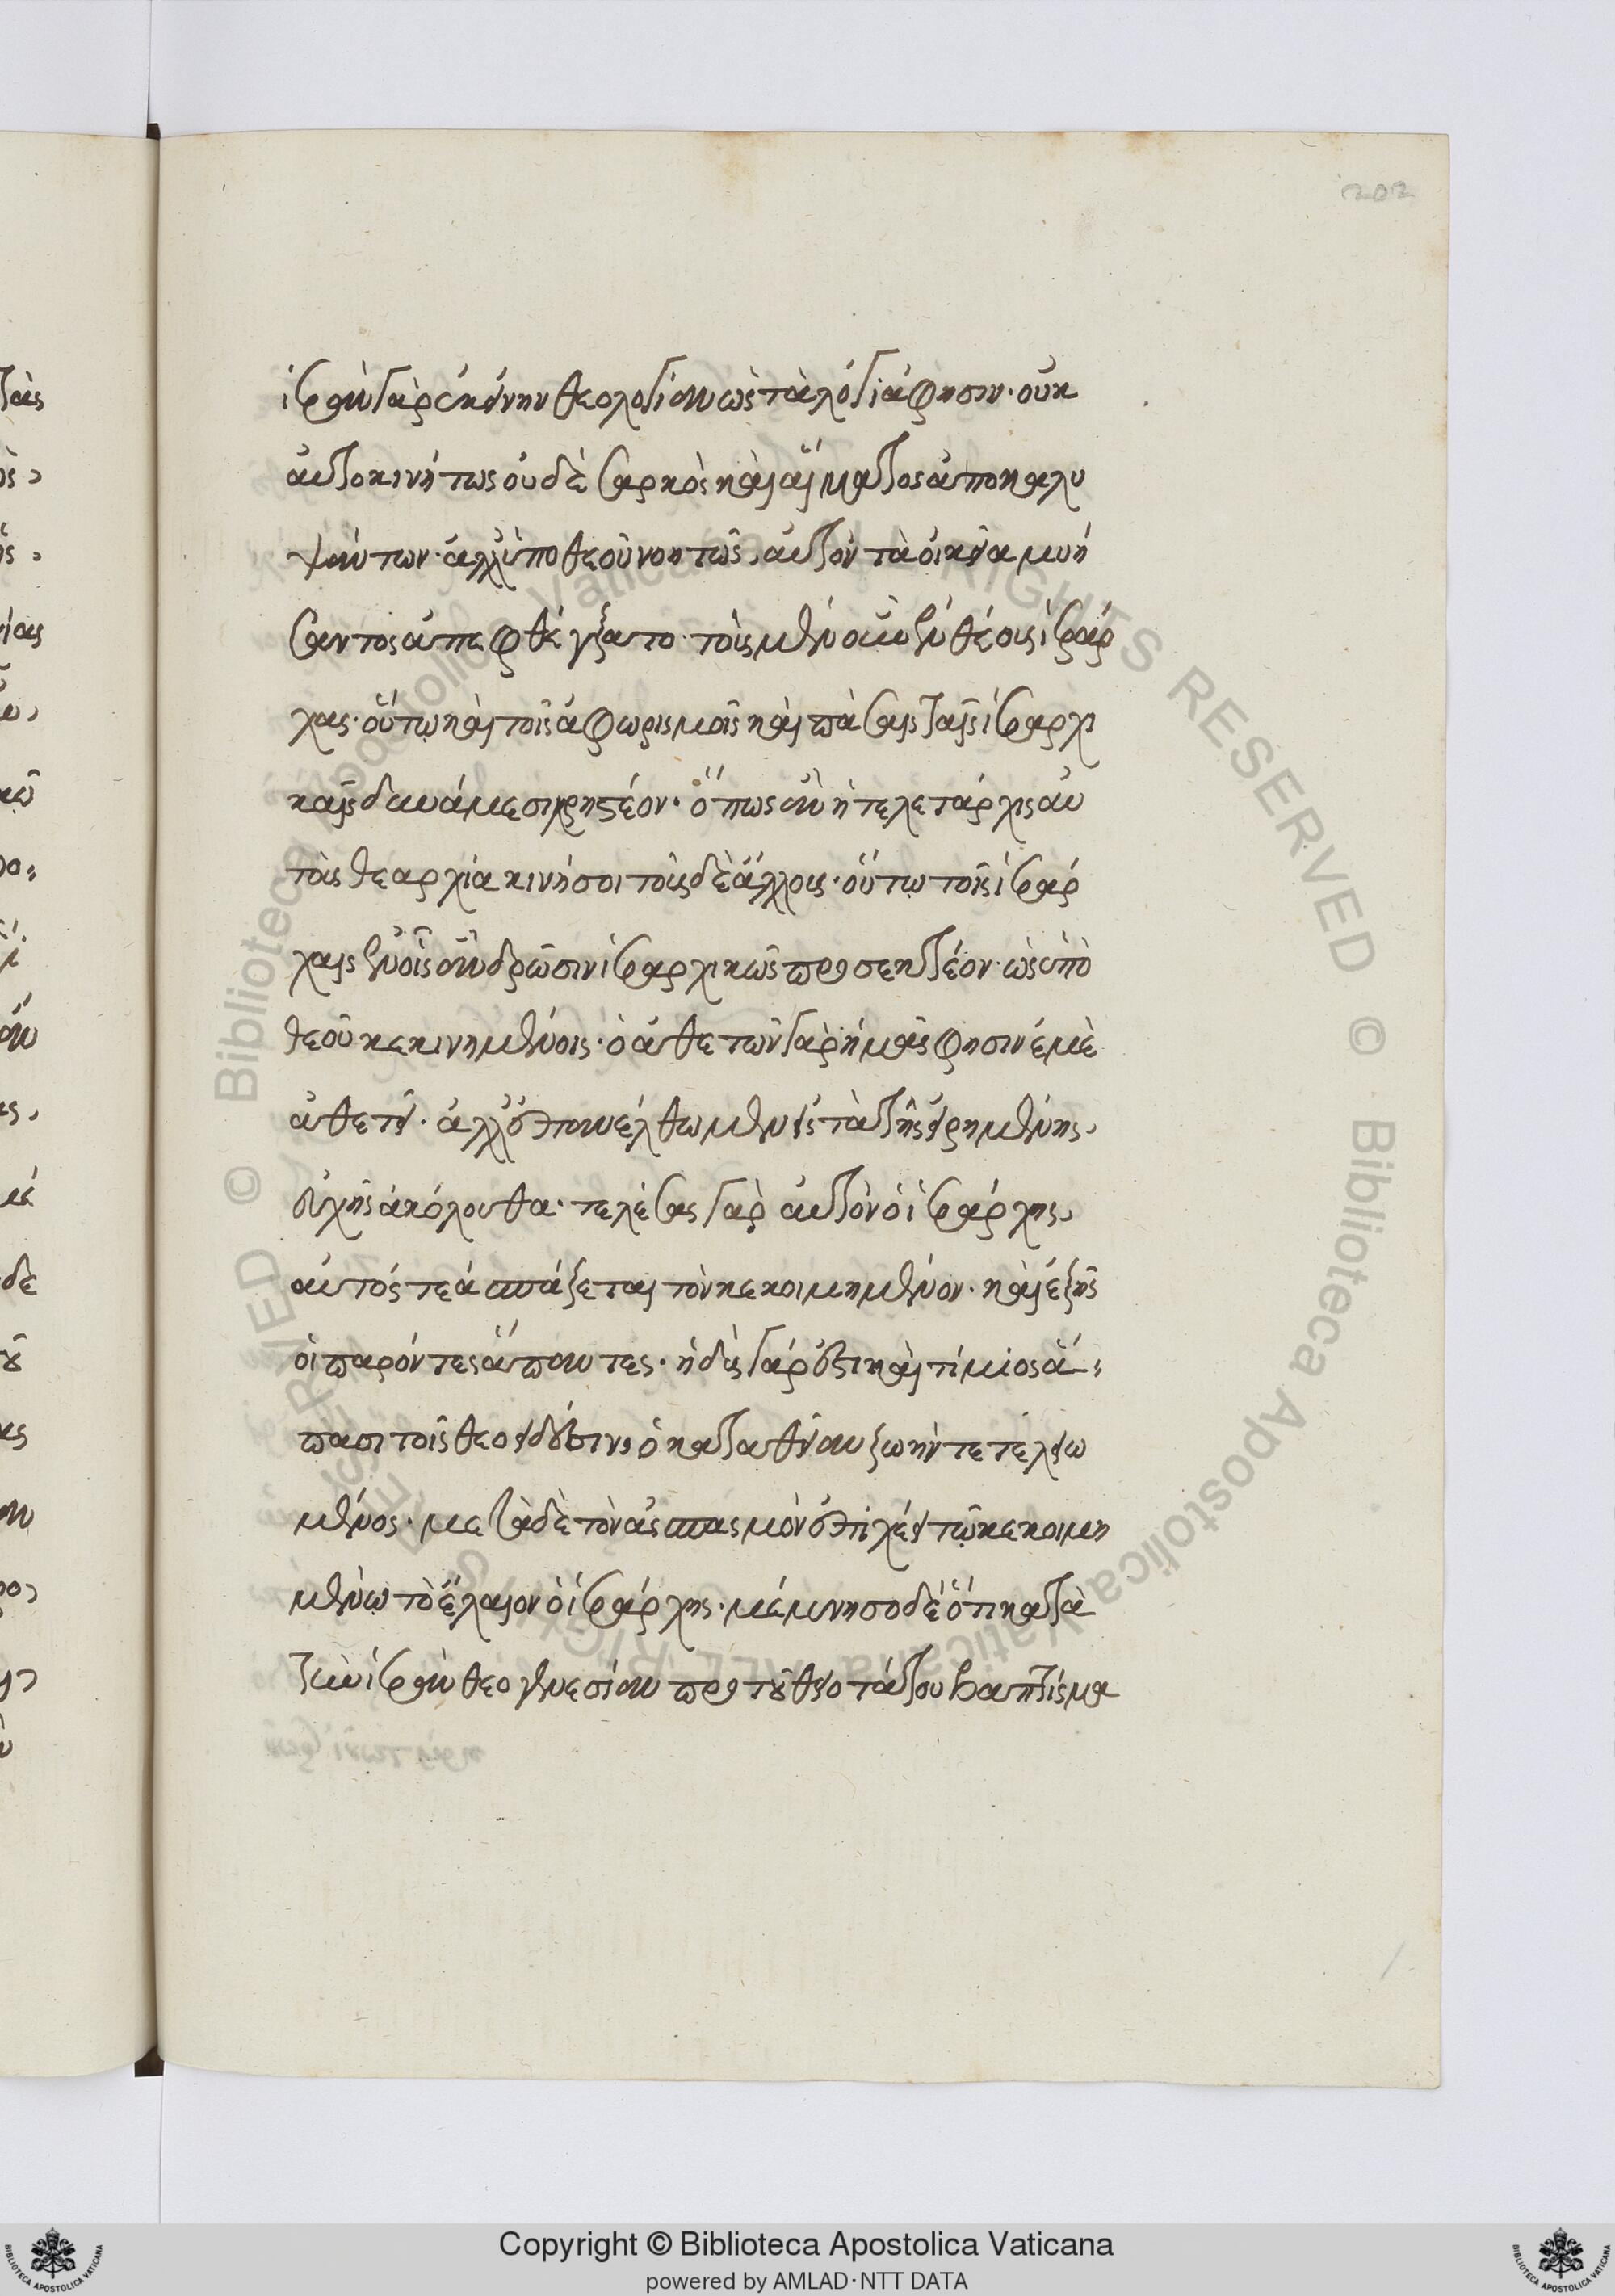 202
ἱερὰν γὰρ ἐκείνην θεολογίαν ὡς τὰ λόγιά φησιν· οὐκ
αὐτοκινήτως οὐδὲ σαρκὸς καὶ αἵματος ἀποκαλυ
ψάντων· ἀλλ' ὑπὸ θεοῦ νοητῶς, αὐτὸν τὰ οἰκεῖα μυή
σαντος ἀπεφθέγξατο· τοῖς μὲν οὖν ἐνθέοις ἱεράρ
χαις· οὕτω καὶ τοῖς ἀφωρισμοῖς καὶ πάσαις ταῖς ἱεραρχι
καῖς δυνάμεσι χρηστέον· ὅπως ἂν ἡ τελετάρχις αὐ
τοὺς θεαρχία κινήσοι τοὺς δὲ ἄλλους· οὕτω τοῖς ἱεράρ
χαις ἐν οἷς ἂν δρῶσιν ἱεραρχικῶς προσεκτέον· ὡς ὑπὸ
θεοῦ κεκινημένοις· ὁ ἀθετῶν γὰρ ἡμᾶς φησιν ἐμὲ
ἀθετεῖ· ἀλλ' ἐπανέλθωμεν εἰς τὰ τῆς εἰρημένης,
εὐχῆς ἀκόλουθα· τελέσας γὰρ αὐτὸν ὁ ἱεράρχης,
αὐτός τε ἀσπάζεται τὸν κεκοιμημένον· καὶ ἑξῆς
οἱ παρόντες ἅπαντες· ἡδὺς γάρ ἐστι καὶ τίμιος ἅ-
πασι τοῖς θεοειδέσιν, ὁ κατὰ θείαν ζωήν τετελειω
μένος· μετὰ δὲ τὸν ἀσπασμὸν ἐπιχέει τῷ κεκοιμη
μένῳ τὸ ἔλαιον ὁ ἱεράρχης· μέμνησο δέ ὅτι κατὰ
τὴν ἱερὰν θεογενεσίαν πρὸ τοῦ θειοτάτου βαπτίσμα